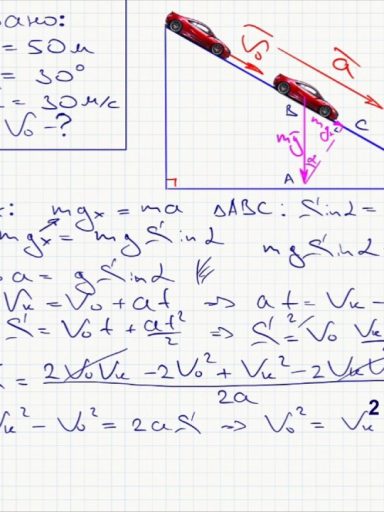 ано:
= 50 м
= 30°
= 30 м/с
V₀ - ?
V̄₀
ā
B
C
mḡ
mgₓ
α
A
: mgₓ = ma △ABC: Sinα =
mgₓ = mg Sinα mg Sinα
a = g Sinα
Vₖ = V₀ + at ⇒ at = Vₖ -
S = V₀t + at²/2 ⇒ S = V₀ Vₖ
= (2V₀Vₖ - 2V₀² + Vₖ² - 2VₖV
2a
Vₖ² - V₀² = 2aS ⇒ V₀² = Vₖ²